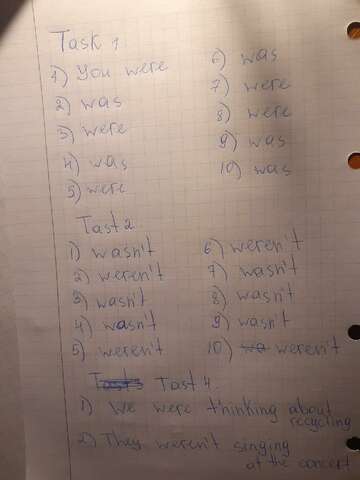 Task 1.
1) You were
2) was
3) were
4) was
5) were
6) was
7) were
8) were
9) was
10) was
Task 2
1) wasn't
2) weren't
3) wasn't
4) wasn't
5) weren't
6) weren't
7) wasn't
8) wasn't
9) wasn't
10) weren't
Task 4.
1) We were thinking about
recycling
2) They weren't singing
at the concert